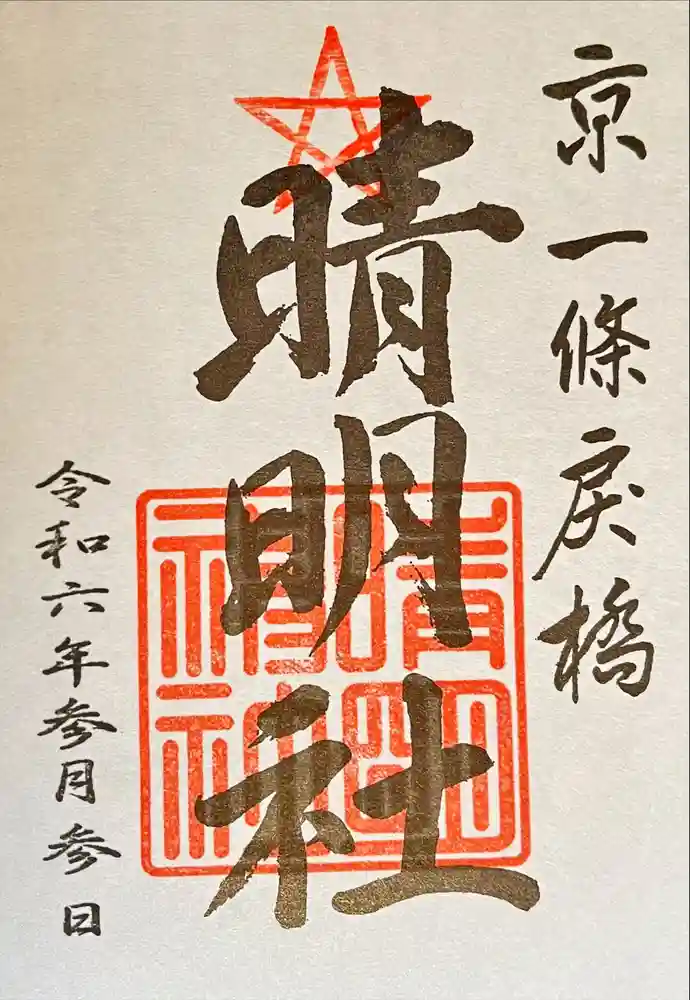 京一條戻橋
晴明社
晴明
神社
令和六年参月参日